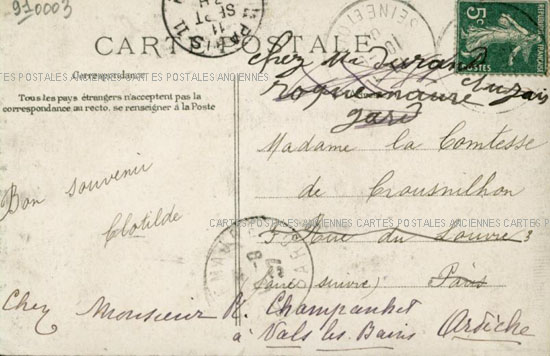 910003
PARIS 11
11 SEPT
CARTE POSTALE
5c
chez Mr Durand
roquemaure
gard
CARTES POSTALES ANCIENNES CARTES POSTALES ANCIENNES
Correspondance
Tous les pays étrangers n'acceptent pas la
correspondance au recto, se renseigner à la Poste
Madame la Comtesse
de Crousnilhon
Bon souvenir
Clotilde
CARTES POSTALES ANCIENNES CARTES POSTALES ANCIENNES
Rue du Louvre 3
(faire suivre) Paris
Chez Monsieur R. Champanhet
à Vals les Bains Ardèche